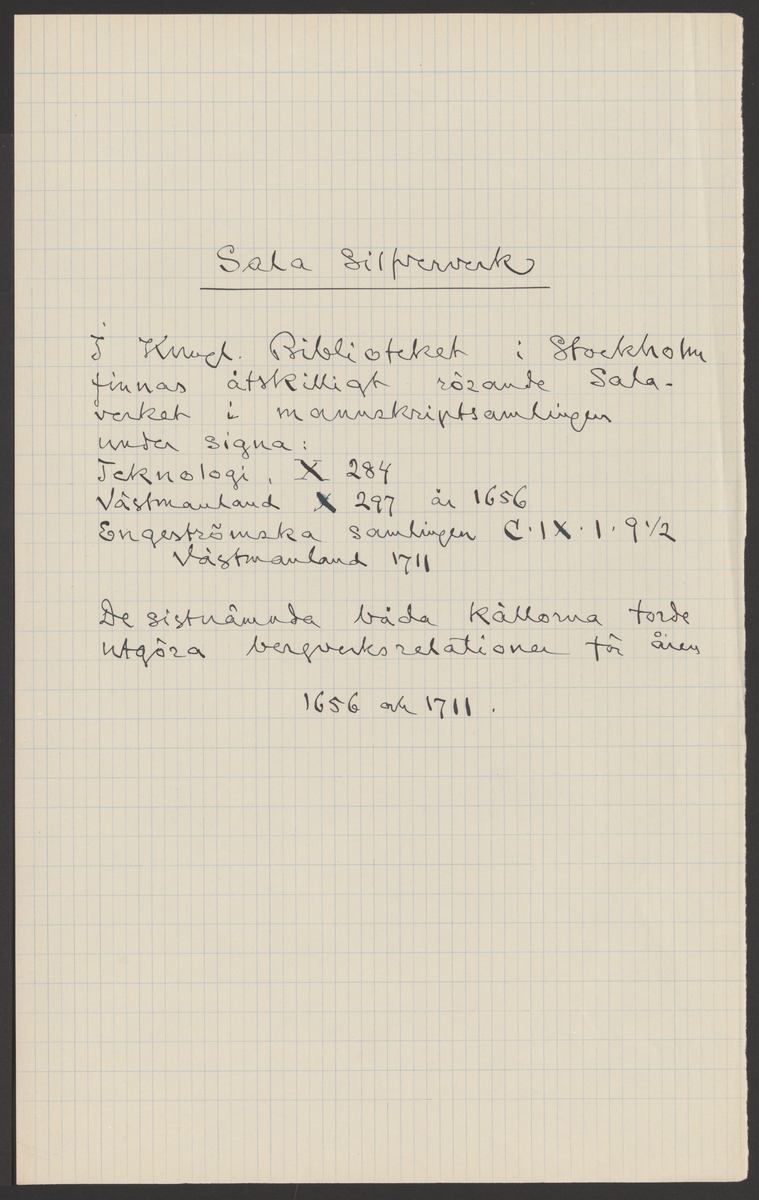 Sala Silfververk
I Kungl. Biblioteket i Stockholm
finnas åtskilligt rörande Sala-
verket i manuskriptsamlingen
under signa:
Teknologi, X 284
Västmanland X 297 år 1656
Engeströmska samlingen C.IX.1.9 1/2
Västmanland 1711
De sistnämnda båda källorna torde
utgöra bergverksrelationer för åren
1656 och 1711.